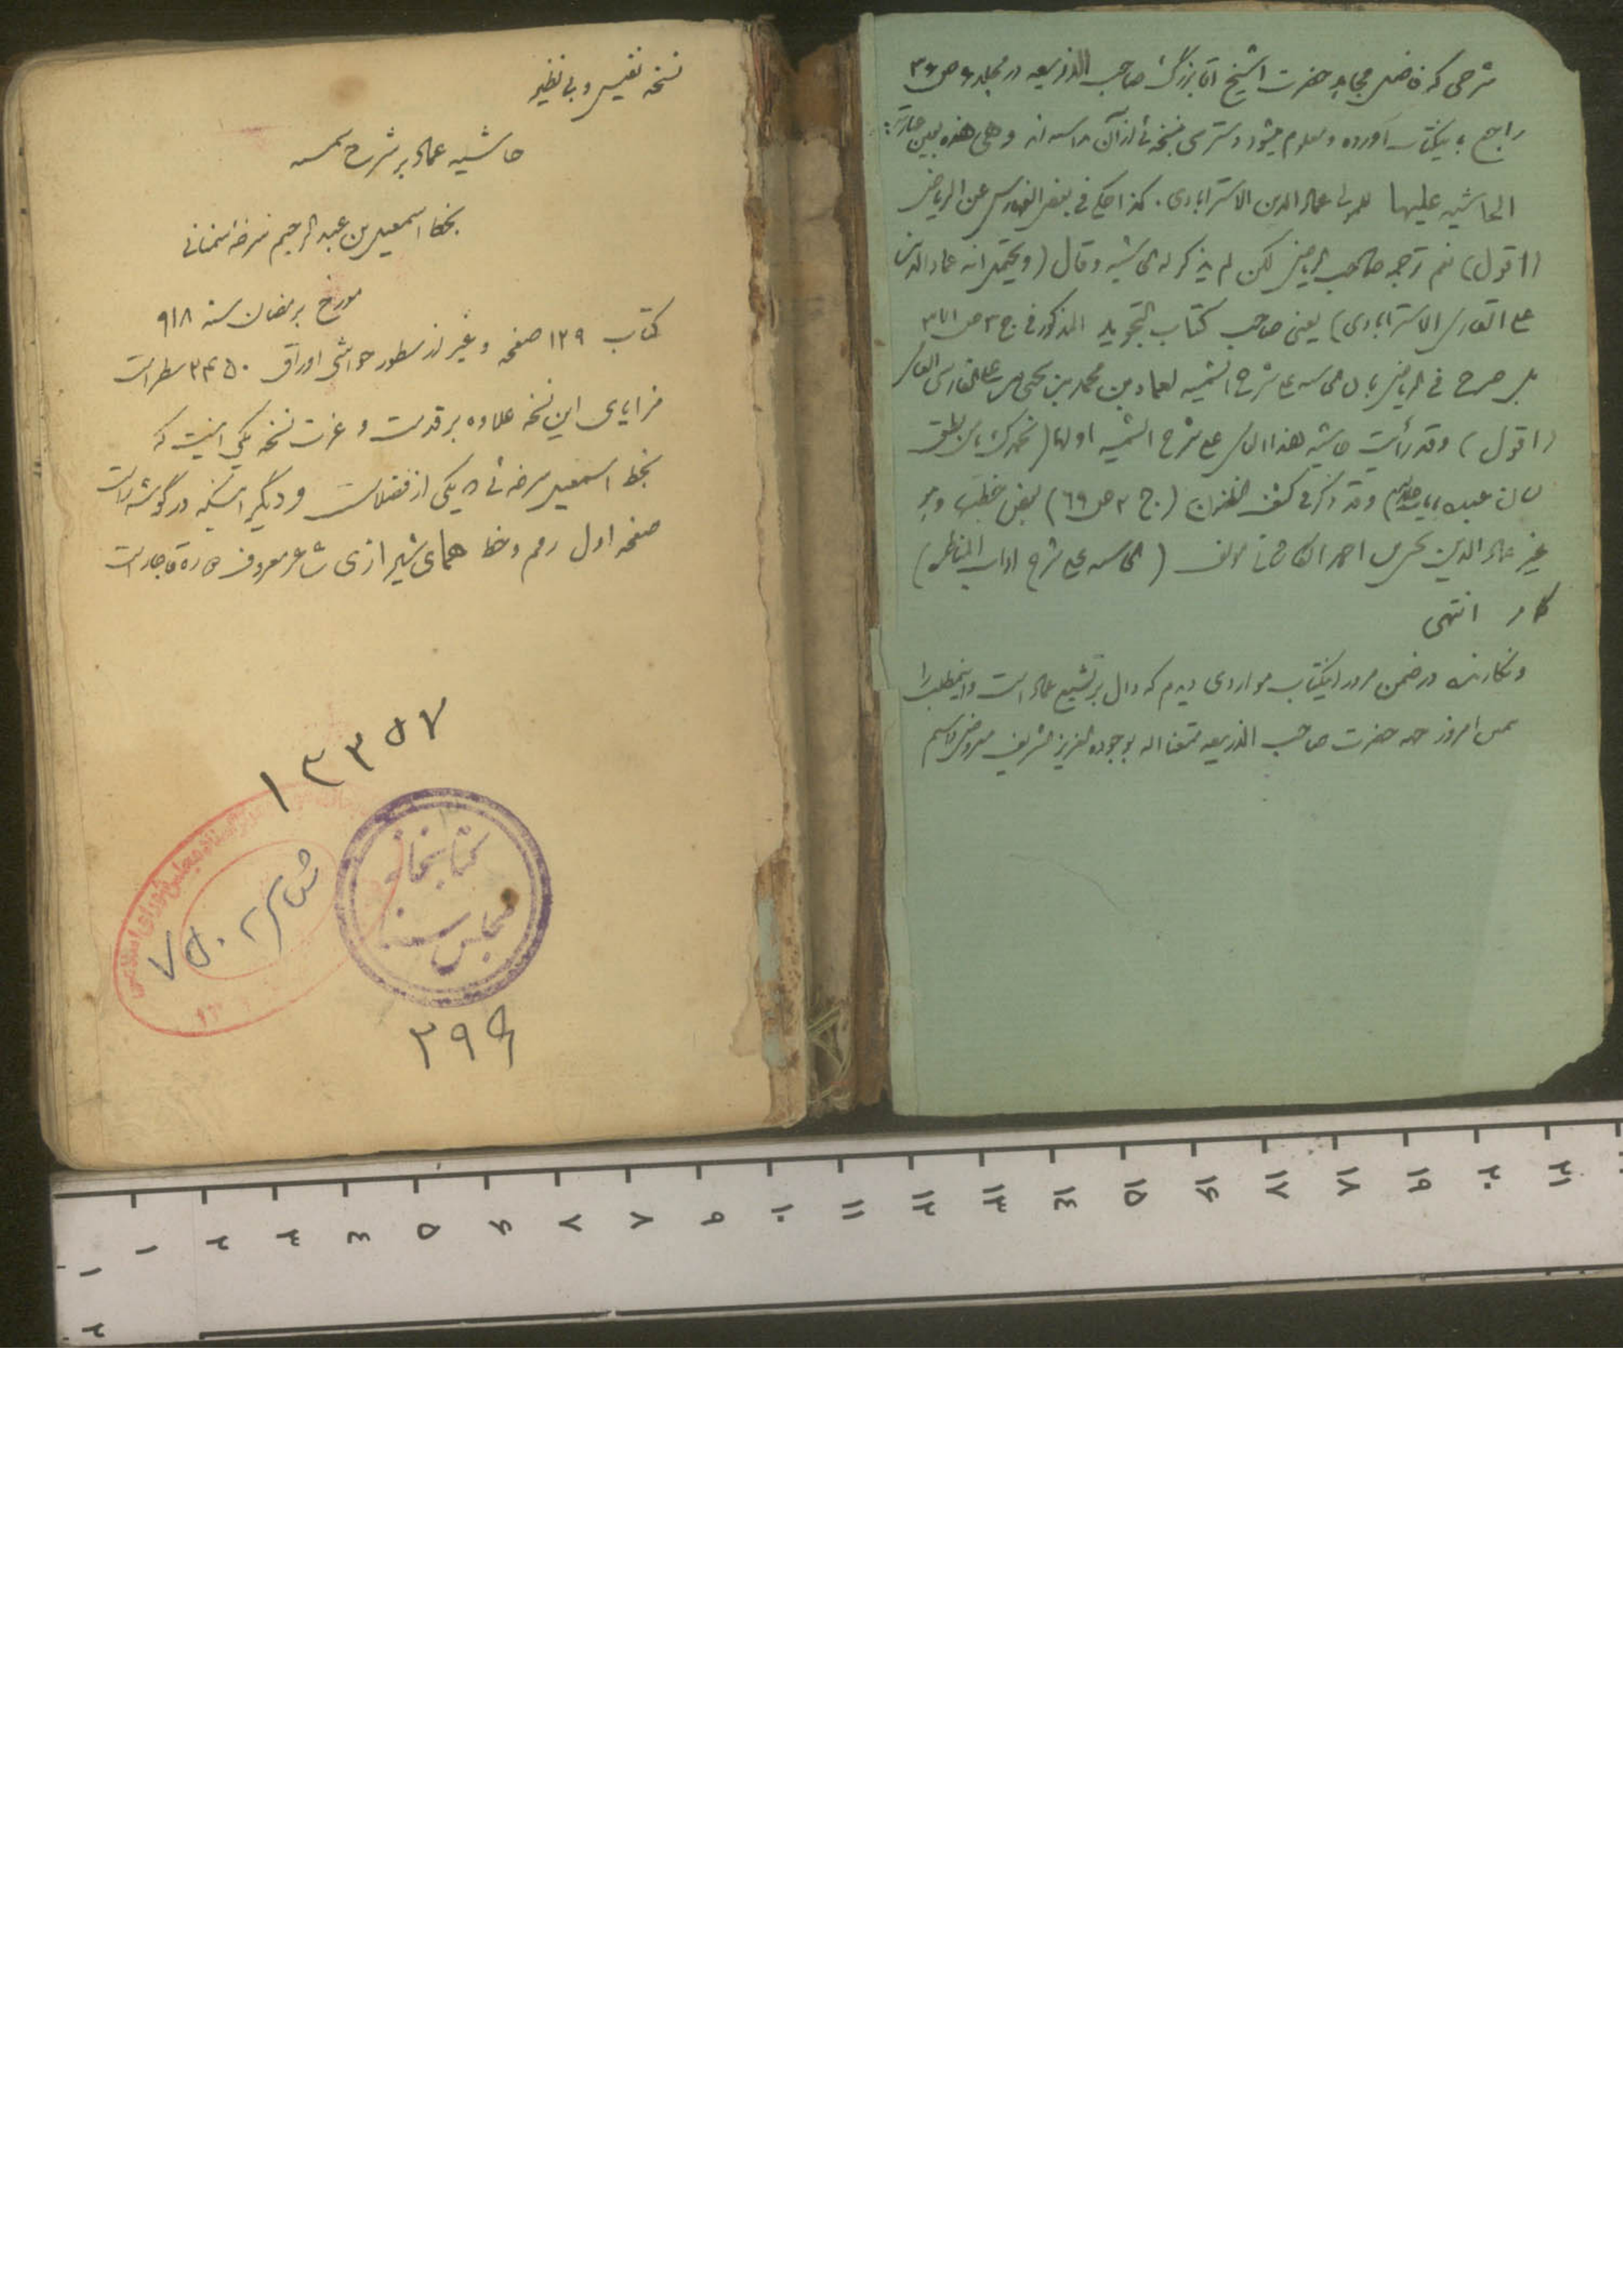 شرحی که فاضل مجاهد حضرت الشیخ آقا بزرگ صاحب الذریعه در مجلد ۶ ص ۳۶
راجع باینکتاب آورده و معلوم میشود دسترسی بنسخه‌ئی از آن و هی هذه بعین عبارته:
الحاشیه علیها للمولی عماد الدین الاسترابادی. کذا حکی فی بعض الفهارس عن الریاض
(اقول) نعم ترجمه صاحب الریاض لکن لم یذکر له الحاشیه وقال (ویحتمل انه عماد الدین
علی القاری الاسترابادی) یعنی صاحب کتاب التجوید المذکور فی ج ۳ ص ۳۷۱
بل صرح فی الریاض بان الحاشیه علی شرح الشمسیه لعماد بن محمد بن یحیی بن علی الفارسی
(اقول) وقد رأیت حاشیه هذا الفارسی علی شرح الشمسیه اولها (نحمدک یا من نطق
لسان وقد ذکر فی کشف الظنون (ج ۲ ص ۶۹) بعض خطبتها وهو
غیر عماد الدین یحیی بن احمد الکاشانی مؤلف (الحاشیه علی شرح اداب المناظره)
کما مر انتهی
و نگارنده در ضمن مرور اینکتاب مواردی دیدم که دال بر تشیع عماد است و اینمطلب را
امروز حضرت صاحب الذریعه متعنا الله بوجوده العزیز الشریف معروض داشتم
نسخه نفیس و بی نظیر
حاشیه عماد بر شرح شمسیه
بخط اسمعیل بن عبد الرحیم سرخه سمنانی
مورخ برمضان سنه ۹۱۸
کتاب ۱۲۹ صفحه و غیر از سطور حواشی اوراق ۲۴۵۰ سطر است
مزایای این نسخه علاوه بر قدمت و عزت نسخه یکی اینست که
بخط اسمعیل سرخه‌ئی که یکی از فضلاست و دیگر اینکه در گوشه راست
صفحه اول رقم و خط همای شیرازی شاعر معروف دوره قاجار است
۱۳۳۵۷
کتابخانه
مجلس سنا
مجلس شورای اسلامی
۷۵۰۲
۲۹۹
۱ ۲ ۳ ۴ ۵ ۶ ۷ ۸ ۹ ۱۰ ۱۱ ۱۲ ۱۳ ۱۴ ۱۵ ۱۶ ۱۷ ۱۸ ۱۹ ۲۰ ۲۱
۱
۲